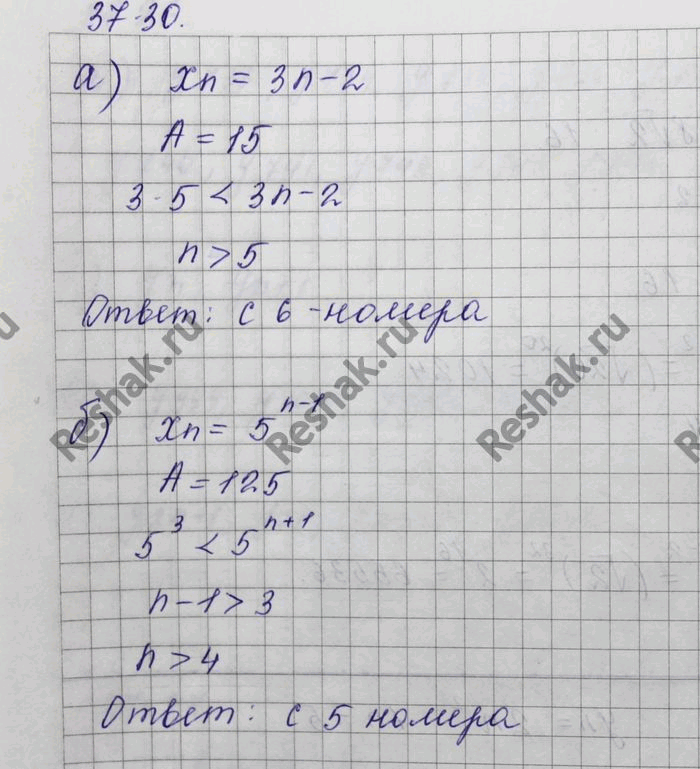 37.30.
а) xn = 3n-2
A = 15
3·5 < 3n-2
n > 5
Ответ: с 6-номера
Reshak.ru Reshak.ru Reshak.ru
б) xn = 5^{n-1}
A = 125
5^{3} < 5^{n+1}
n-1 > 3
n > 4
Ответ: с 5 номера